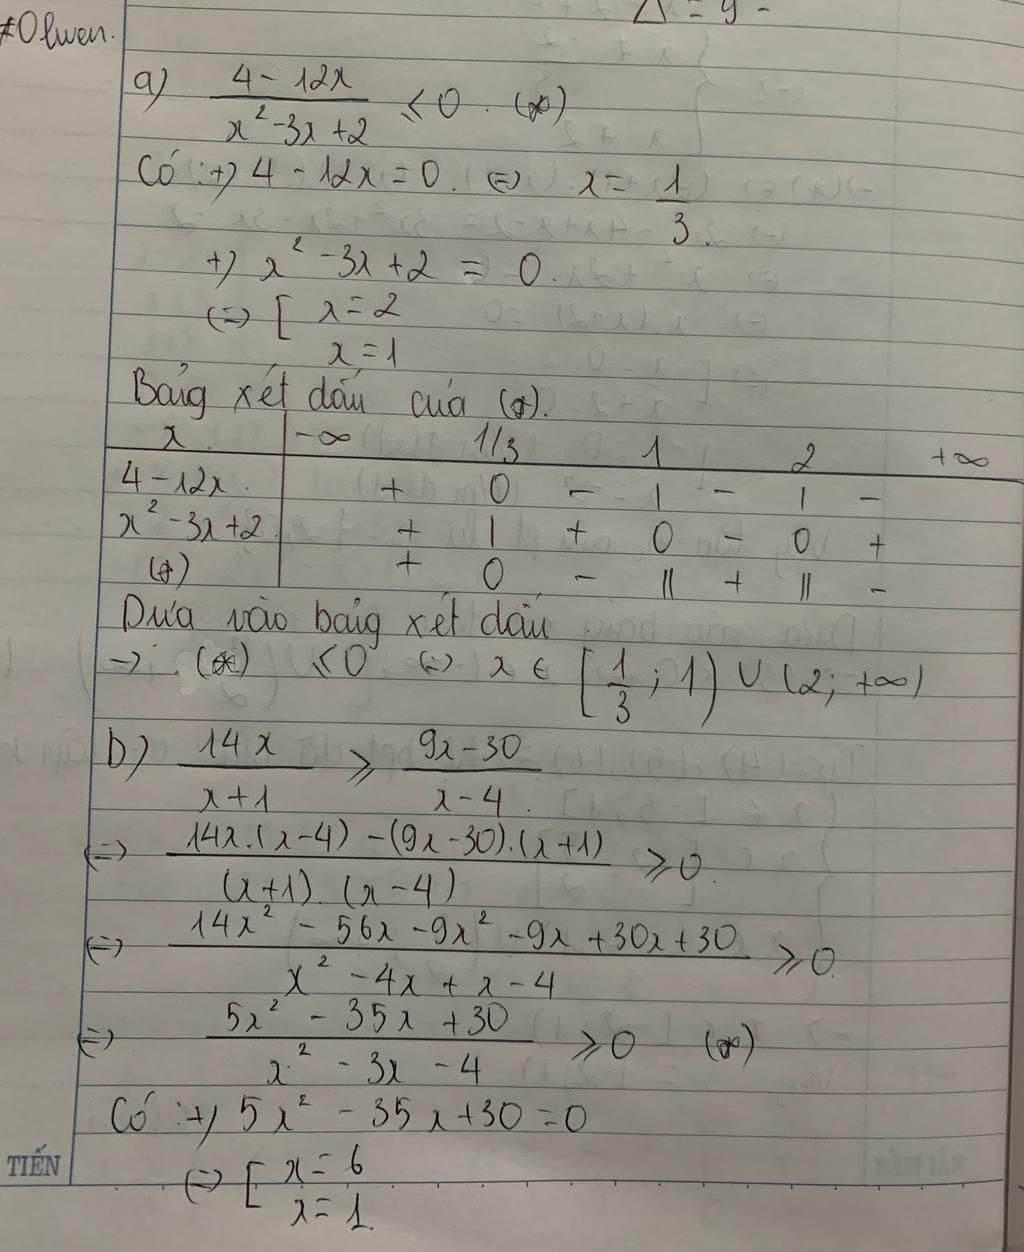 Δ = 9 -
#Olwen.
a) \frac{4 - 12x}{x² - 3x + 2} ≤ 0. (*)
Có: +) 4 - 12x = 0. (=) x = \frac{1}{3}.
+) x² - 3x + 2 = 0.
(=) [ x = 2
x = 1
Bảng xét dấu của (*).
x. -∞ 1/3 1 2 +∞
4 - 12x. + 0 - | - | -
x² - 3x + 2 + | + 0 - 0 +
(*) + 0 - || + || -
Dựa vào bảng xét dấu
→ (*) ≤ 0 (=) x ∈ [\frac{1}{3}; 1) ∪ (2; +∞)
b) \frac{14x}{x+1} ≥ \frac{9x - 30}{x - 4}.
(=) \frac{14x.(x-4) - (9x-30).(x+1)}{(x+1).(x-4)} ≥ 0.
(=) \frac{14x² - 56x - 9x² - 9x + 30x + 30}{x² - 4x + x - 4} ≥ 0.
(=) \frac{5x² - 35x + 30}{x² - 3x - 4} ≥ 0 (*)
Có: +) 5x² - 35x + 30 = 0
TIẾN
(=) [ x = 6
x = 1.